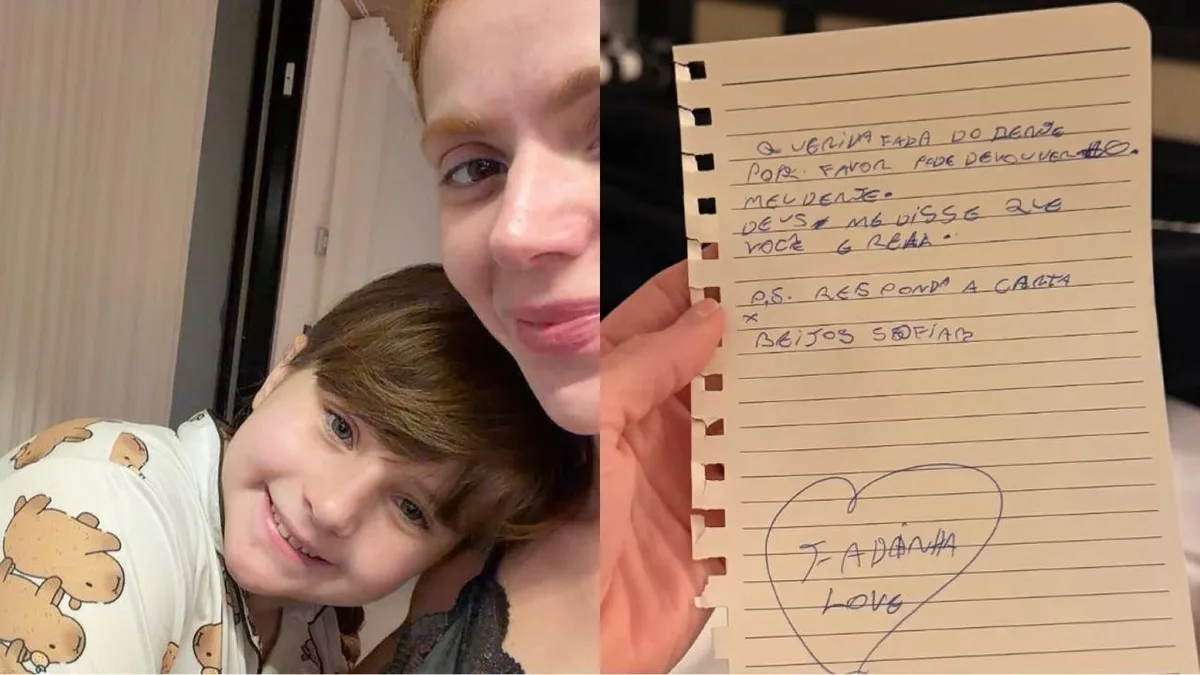 QUERIDA FADA DO DENTE
POR. FAVOR PODE DEVOUVER O.
MEU DENTE.
DEUS ME DISSE QUE
VOCE E REAL.
P.S. RESPONDA A CARTA
x
BEIJOS SOFIA
FADINHA
LOVE